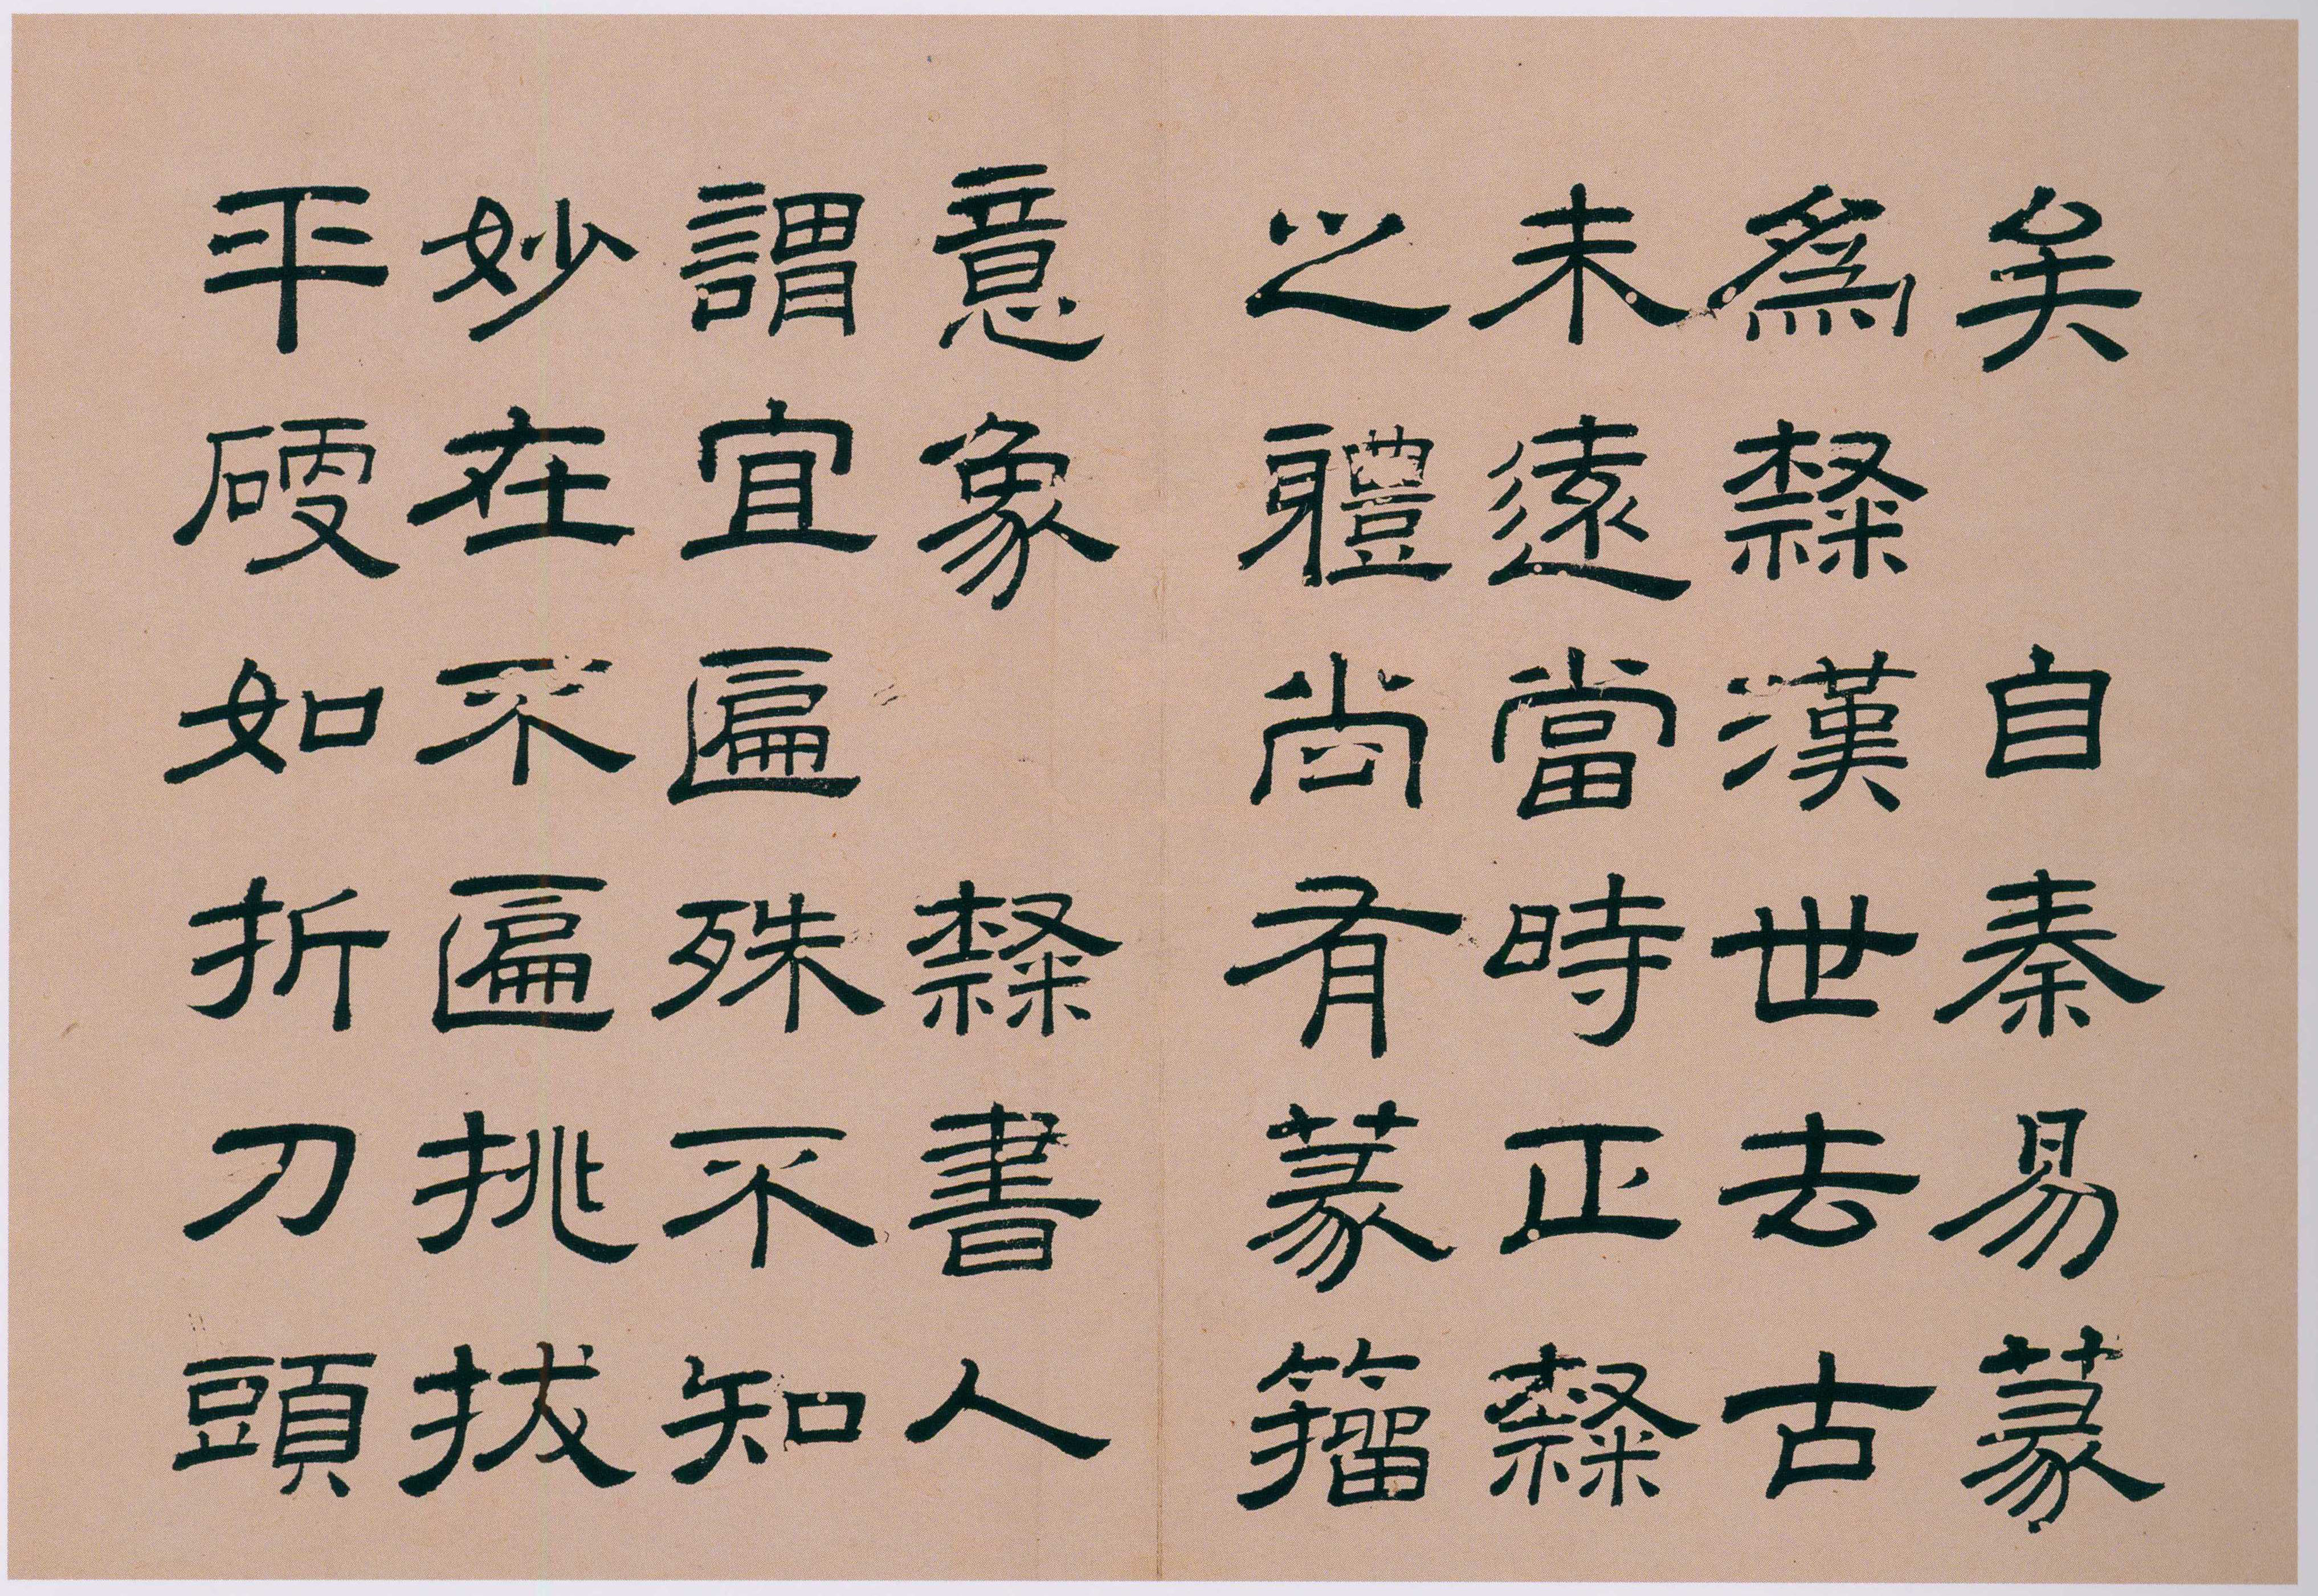 矣　自秦易篆
爲隸漢世去古
未遠當時正隸
之體尚有篆籀
意象　隸書人
謂宜匾殊不知
妙在不匾挑拔
平硬如折刀頭